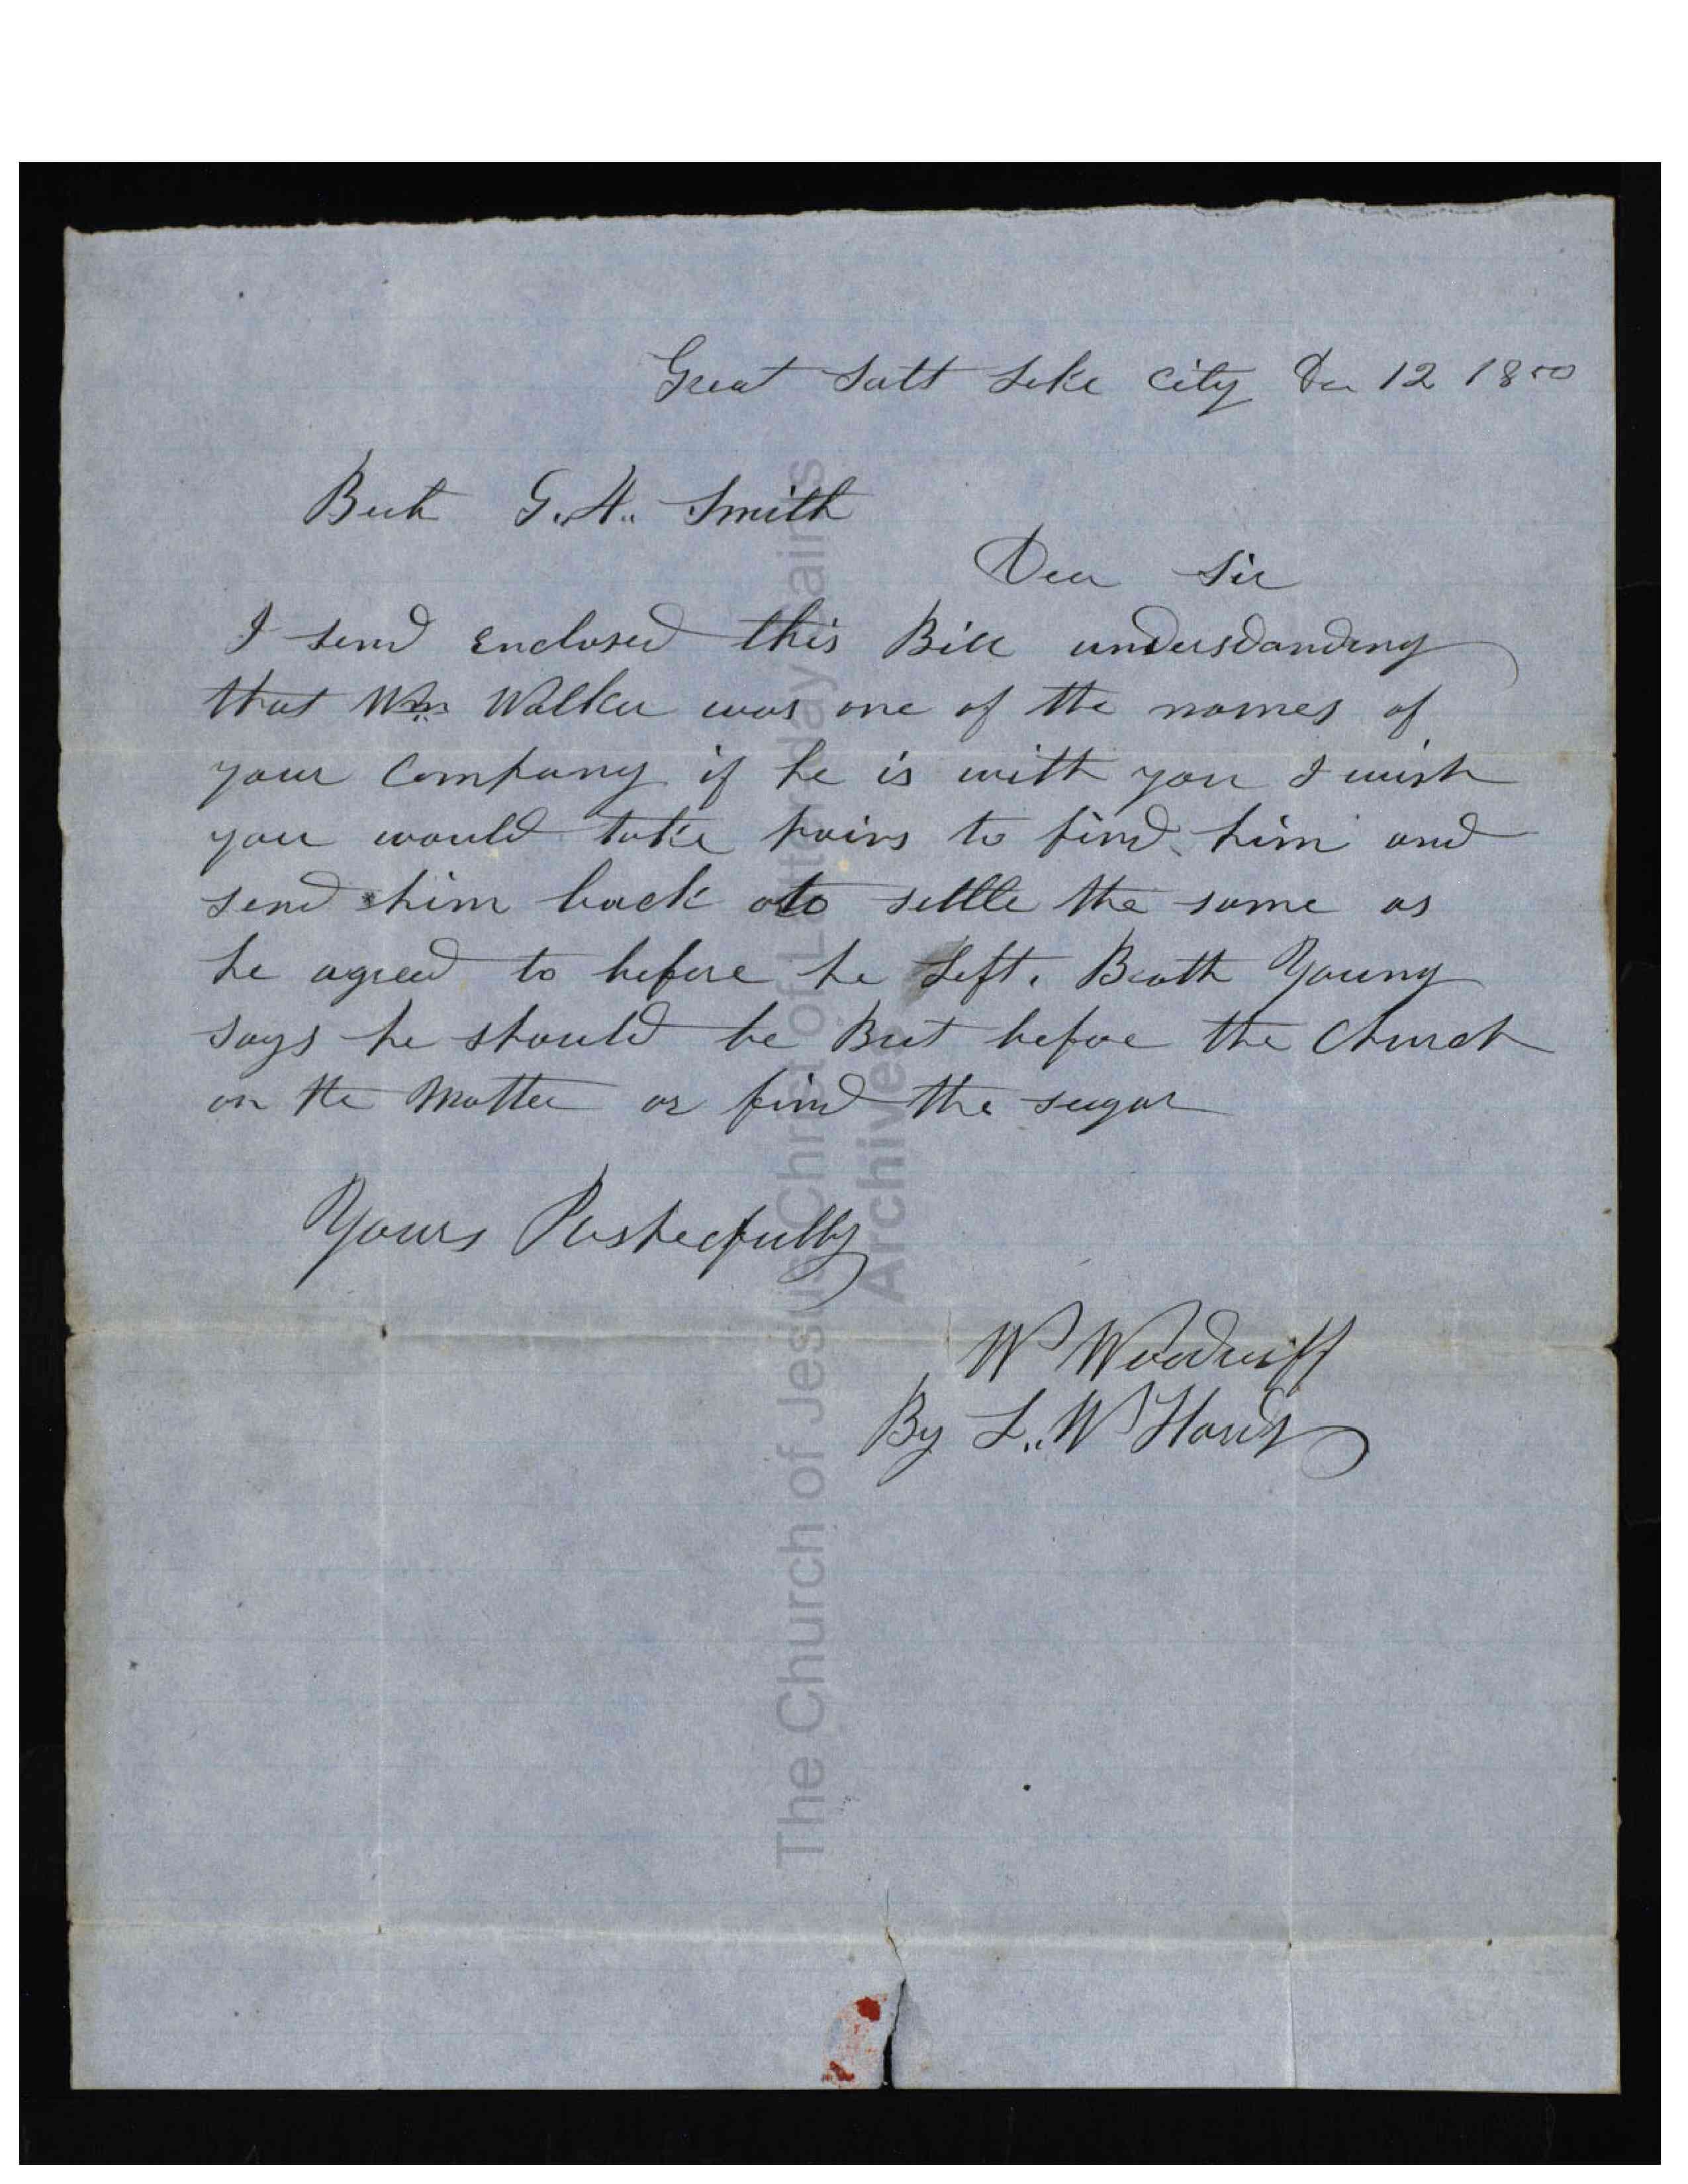 Great Salt Lake City Dec 12 1850
G. H. Smith
Dear Sir
I send Enclosed this Bill understanding
that Wm Walker was one of the names of
your Company if he is with you I wish
you would take pains to find him and
send him back to settle the same as
he agreed to before he Left. Broth Young
says he should be But before the Church
on the Matter or find the sugar
Yours Respecfully
W Woodruff
By L. W
The Church of Jesus Christ of Latter-day Saints
Archives